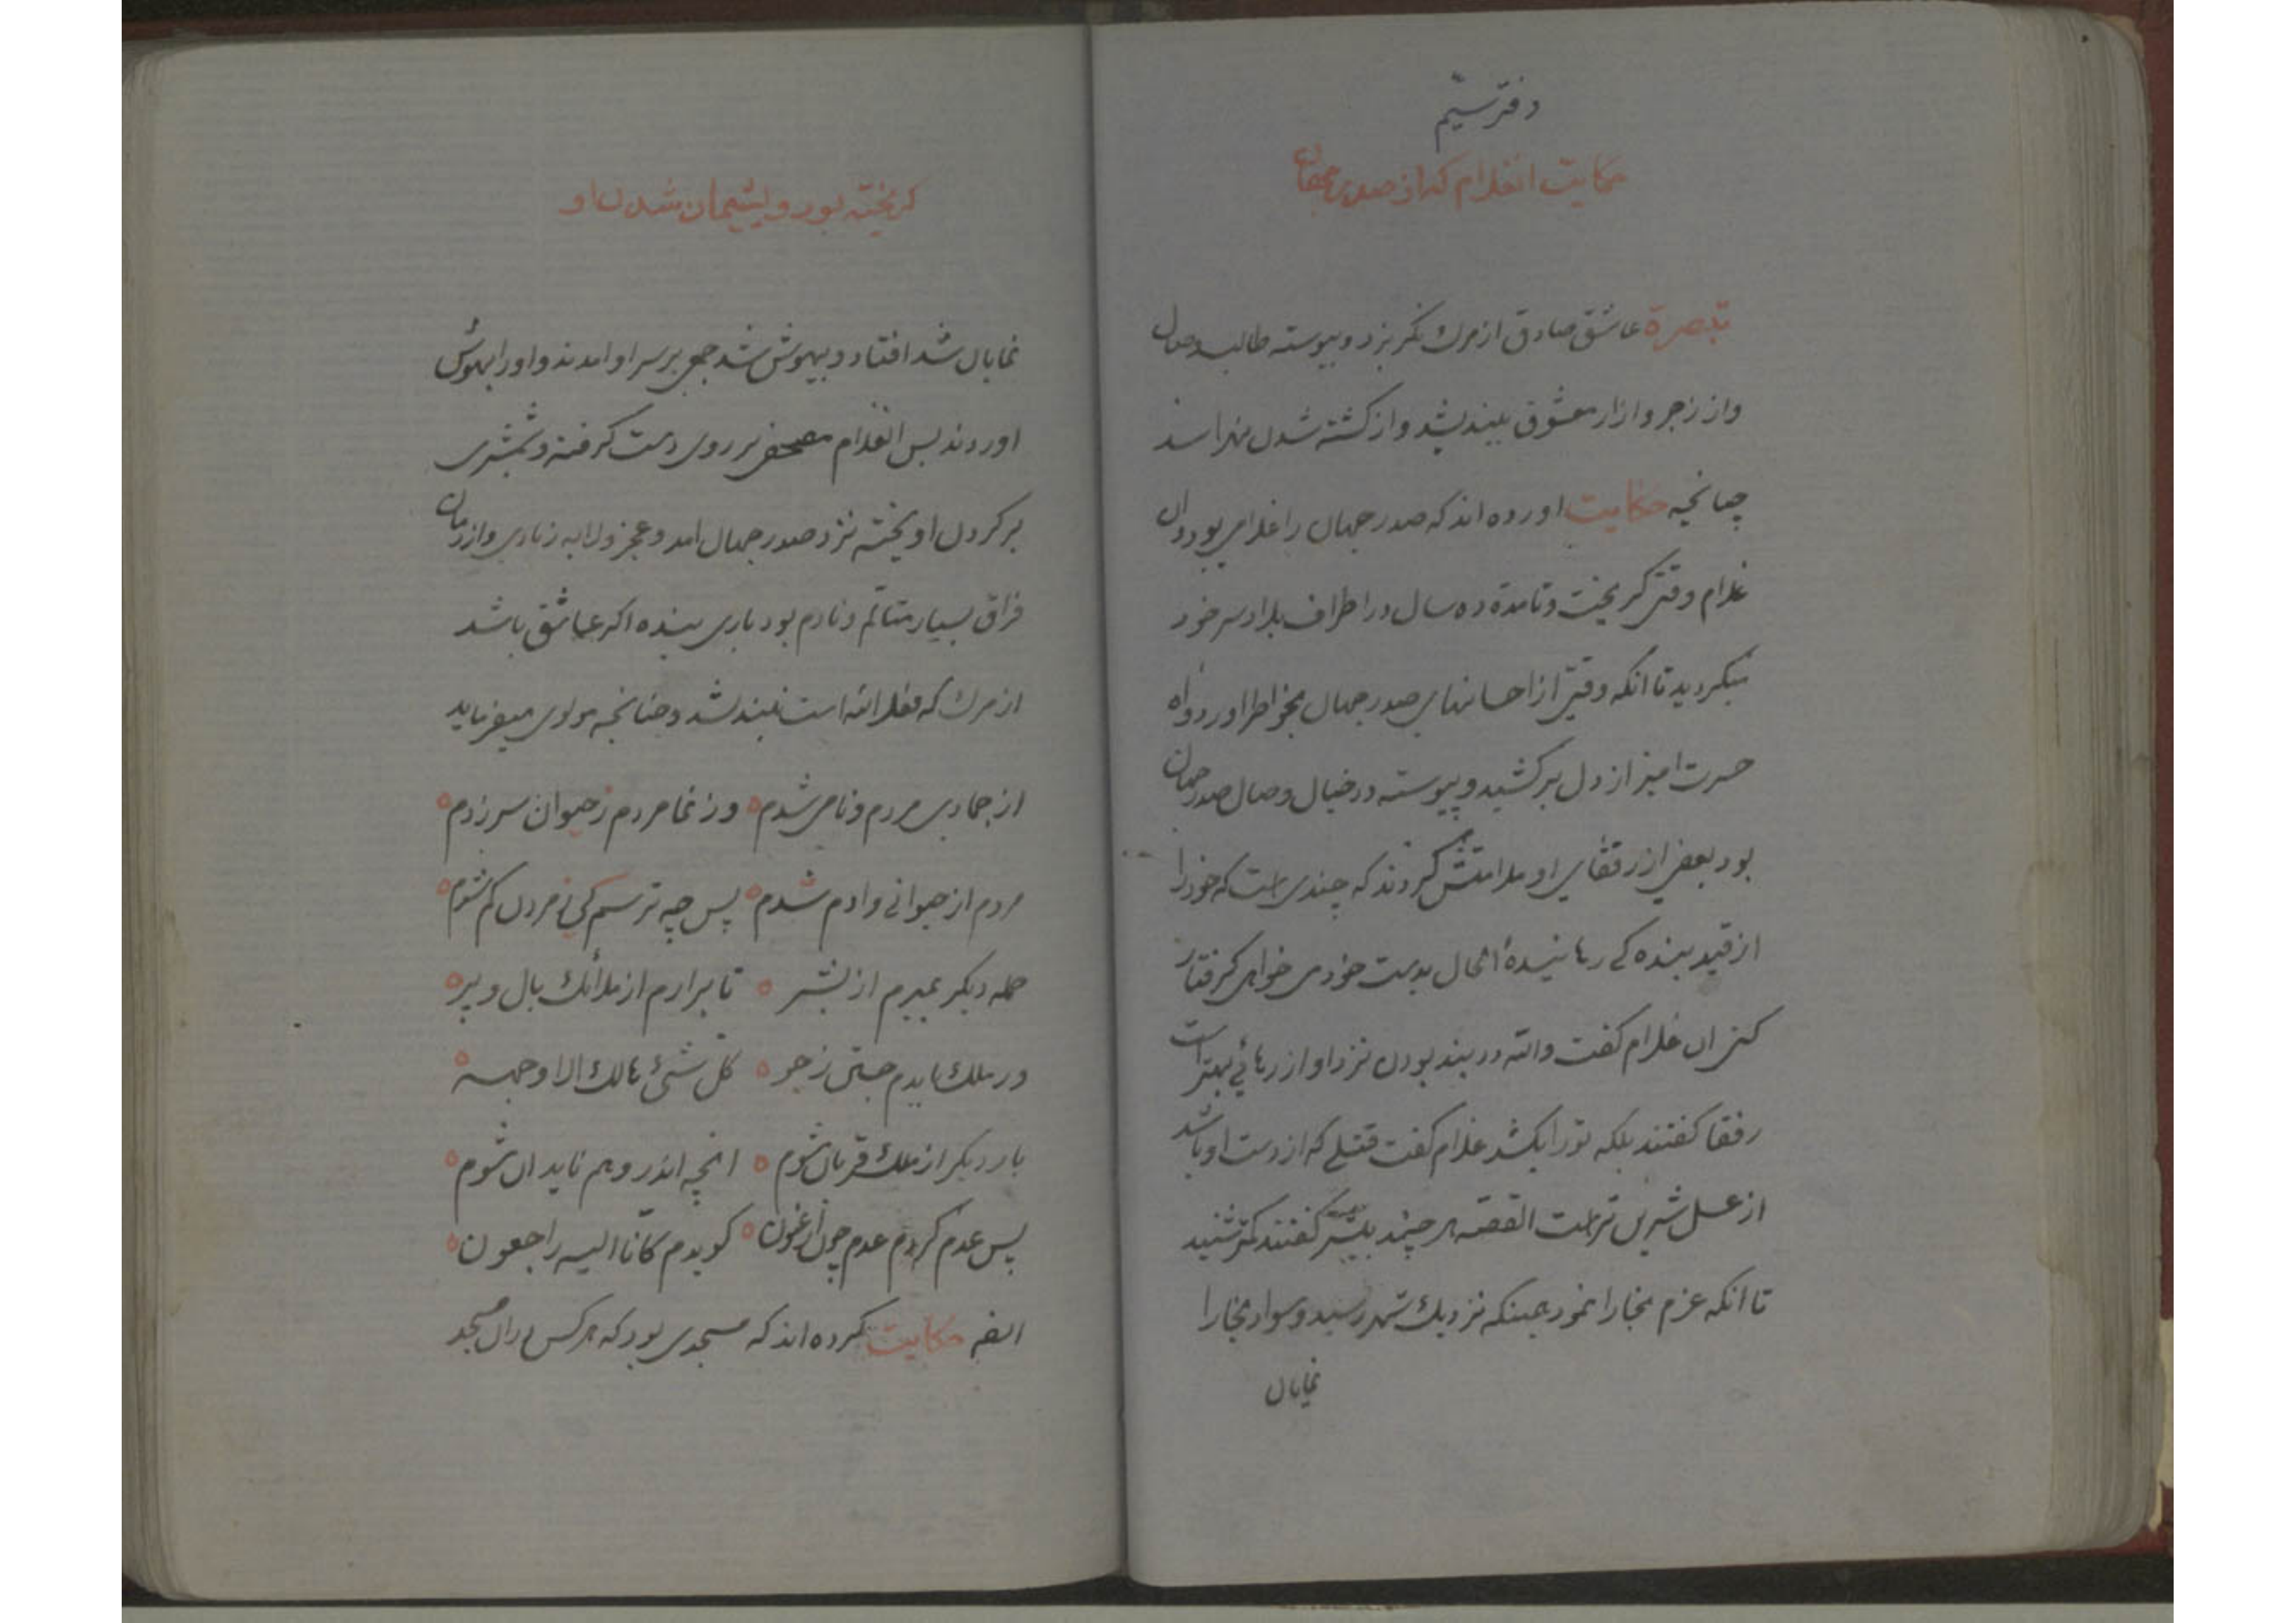 دفتر سیم
حکایت انغلام که از صدر جهان
تبصرة عاشق صادق از مرك نگریزد و پیوسته طالب وصال
واز زجر و ازار معشوق نیندیشد و از کشته شدن نهراسد
چنانچه حکایت اورده اند که صدر جهان را غلامی بود و ان
غلام وقتی کریخت و تا مدة ده سال در اطراف بلاد سر خود
میکردید تا انکه وقتی از احسانهای صدر جهان بخواطر اورد و اه
حسرت امیز از دل برکشید و پیوسته در خیال وصال صدر جهان
بود بعضی از رفقای او ملامتش کردند که چندی است که خود را
از قید بنده کے رهانیدهٔ الحال بدست خود می خواهی کرفتار
کنی ان غلام کفت والله در بند بودن نزد او از رهائی بهتر است
رفقا کفتند بلکه تو را بکشد غلام کفت قتلے که از دست او باشد
از عسل شیرین تر است القصه هر چند بیشتر کفتند کمتر شنید
تا انکه عزم بخارا نمود همینکه نزدیك شهر رسید و سواد بخارا
نمایان
کریخته بود و پشیمان شدن او
نمایان شد افتاد و بیهوش شد جمعی بر سر او امدند و او را بهوش
اوردند پس انغلام مصحفی بر روی دست کرفته و شمشیری
بر کردن اویخته نزد صدر جهان امد و عجز و لابه زیادی و از زمان
فراق بسیار متالم و نادم بود باری بنده اکر عاشق باشد
از مرك که فعل الله است نیندیشد و چنانچه مولوی میفرماید
از جمادی مردم و نامی شدم ٥ وز نما مردم ز حیوان سر زدم ٥
مردم از حیوانی و ادم شدم ٥ پس چه ترسم کی ز مردن کم شوم ٥
حمله دیکر بمیرم از بشر ٥ تا برارم از ملائك بال و پر ٥
ور ملك بایدم جستن ز جو ٥ کل شیئ هالك الا وجهه ٥
بار دیکر از ملك قربان شوم ٥ انچه اندر وهم ناید ان شوم ٥
پس عدم کردم عدم چون ارغنون ٥ کویدم کانا الیه راجعون ٥
ایضه حکایت کرده اند که مسجدی بود که هر کس در ان مسجد